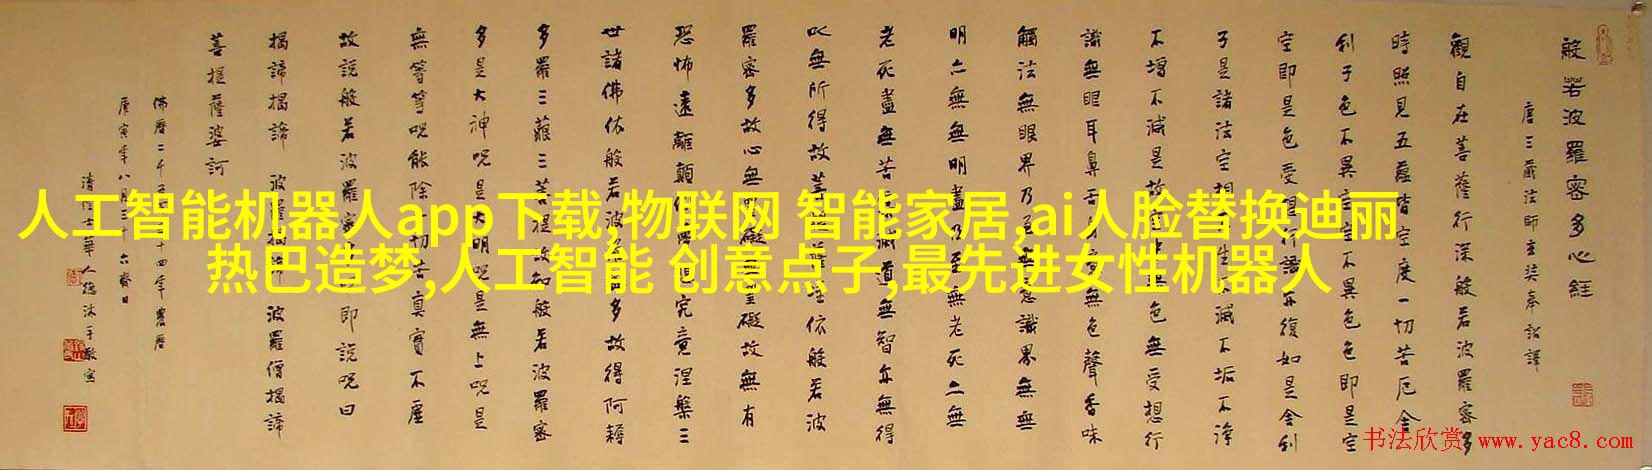 人工智能机器人app下载,物联网 智能家居,ai人脸替换迪丽
热巴造梦,人工智能 创意点子,最先进女性机器人
般若波羅密多心経
唐三藏法師玄奘奉詔譯
觀自在菩薩行深般若波羅密多
時照見五蘊皆空度一切苦厄舍
利子色不異空空不異色色即是空
空即是色受想行識亦復如是舍利
子是諸法空相不生不滅不垢不淨
不增不減是故空中無色無受想行
識無眼耳鼻舌身意無色聲香味
觸法無眼界乃至無意識界無無
明亦無無明盡乃至無老死亦無
老死盡無苦集滅道無智亦無得
以無所得故菩提薩埵依般若波
羅密多故心無罣礙無罣礙故無有
恐怖遠離顛倒夢想究竟涅槃三
世諸佛依般若波羅密多故得阿耨
多羅三藐三菩提故知般若波羅密
多是大神呪是大明呪是無上呪是
無等等呪能除一切苦真實不虛
故說般若波羅密多呪即說呪曰
揭諦揭諦 波羅揭諦 波羅僧揭諦
菩提薩婆訶
佛曆二千五百五十四年農曆
庚寅年八月三十六齋日
清信士華人德沐手敬寫
书法欣赏 www.yac8.com